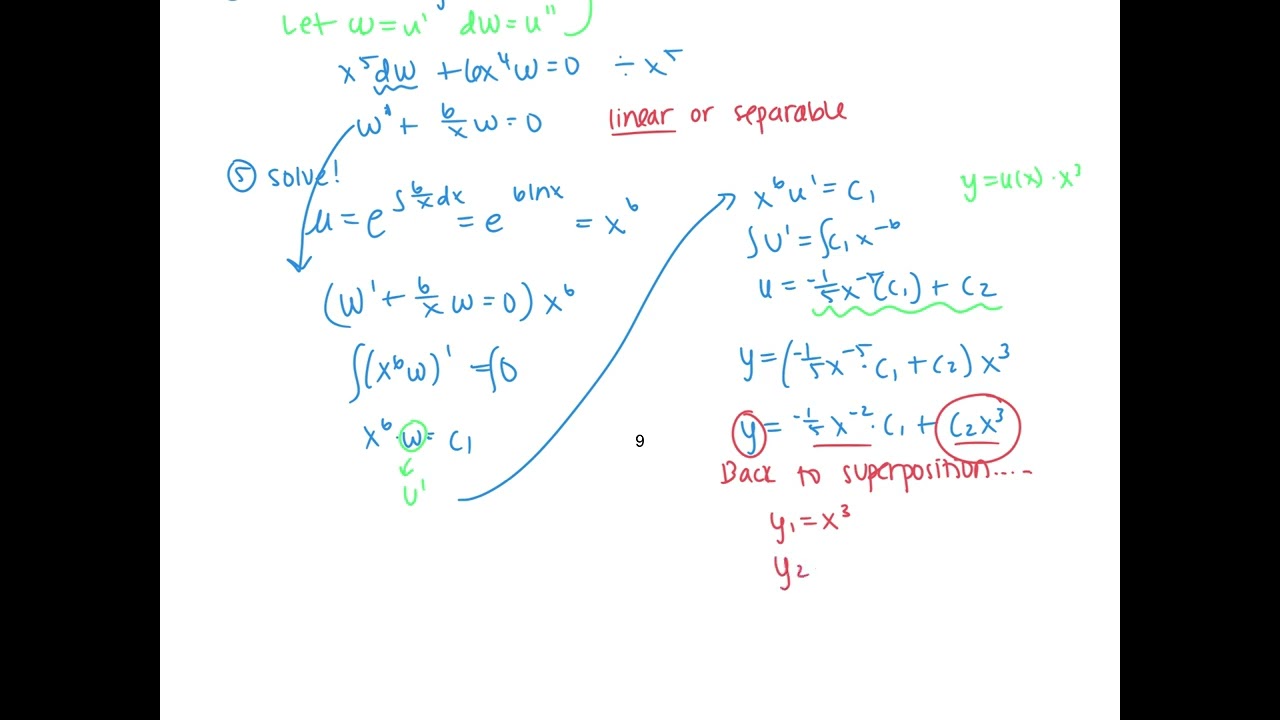 Let w = u' dw = u"
x⁵dw + 6x⁴w = 0 ÷ x⁵
w' + 6/x w = 0 linear or separable
⑤ solve!
μ = e^∫6/x dx = e^6lnx = x⁶
(w' + 6/x w = 0) x⁶
∫(x⁶w)' = ∫0
x⁶·w = C₁
u'
x⁶u' = C₁
y = u(x)·x³
∫u' = ∫C₁x⁻⁶
u = -1/5 x⁻⁵(C₁) + C₂
y = (-1/5 x⁻⁵·C₁ + C₂) x³
y = -1/5 x⁻²·C₁ + C₂x³
Back to superposition.....
y₁ = x³
y₂
9